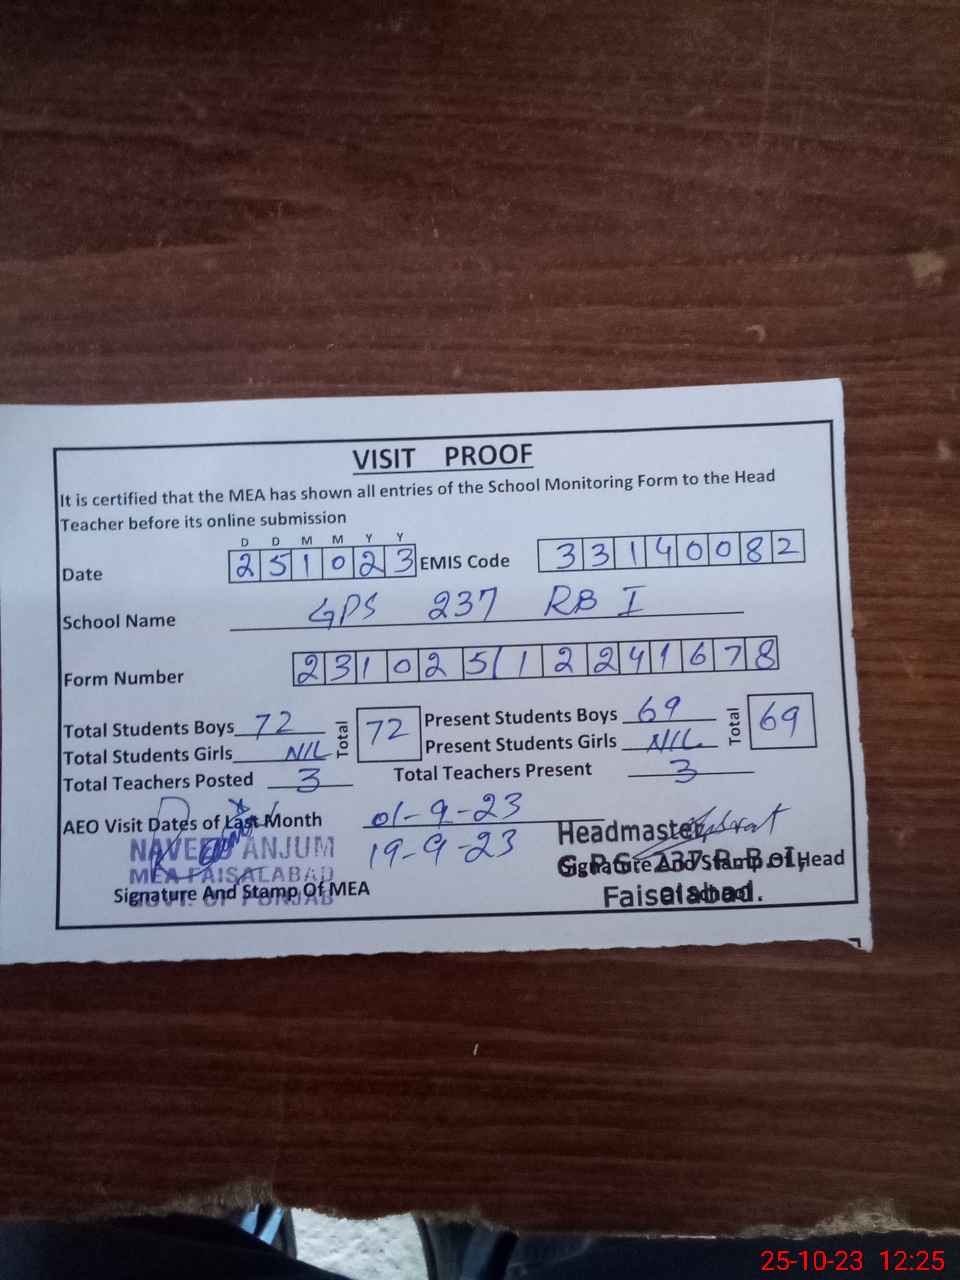 VISIT PROOF
It is certified that the MEA has shown all entries of the School Monitoring Form to the Head
Teacher before its online submission
D D M M Y Y
Date 2 5 1 0 2 3 EMIS Code 3 3 1 4 0 0 8 2
School Name GPS 237 RB I
Form Number 2 3 1 0 2 5 1 2 2 4 1 6 7 8
Total Students Boys 72 Total 72 Present Students Boys 69 Total 69
Total Students Girls NIL Present Students Girls NIL
Total Teachers Posted 3 Total Teachers Present 3
AEO Visit Dates of Last Month 01-9-23
19-9-23
NAVEED ANJUM
MEA FAISALABAD
GOVT. OF PUNJAB
Signature And Stamp Of MEA
Headmaster
G.P.S. 237 R.B.-I,
Faisalabad.
Signature And Stamp of Head
of school
25-10-23 12:25